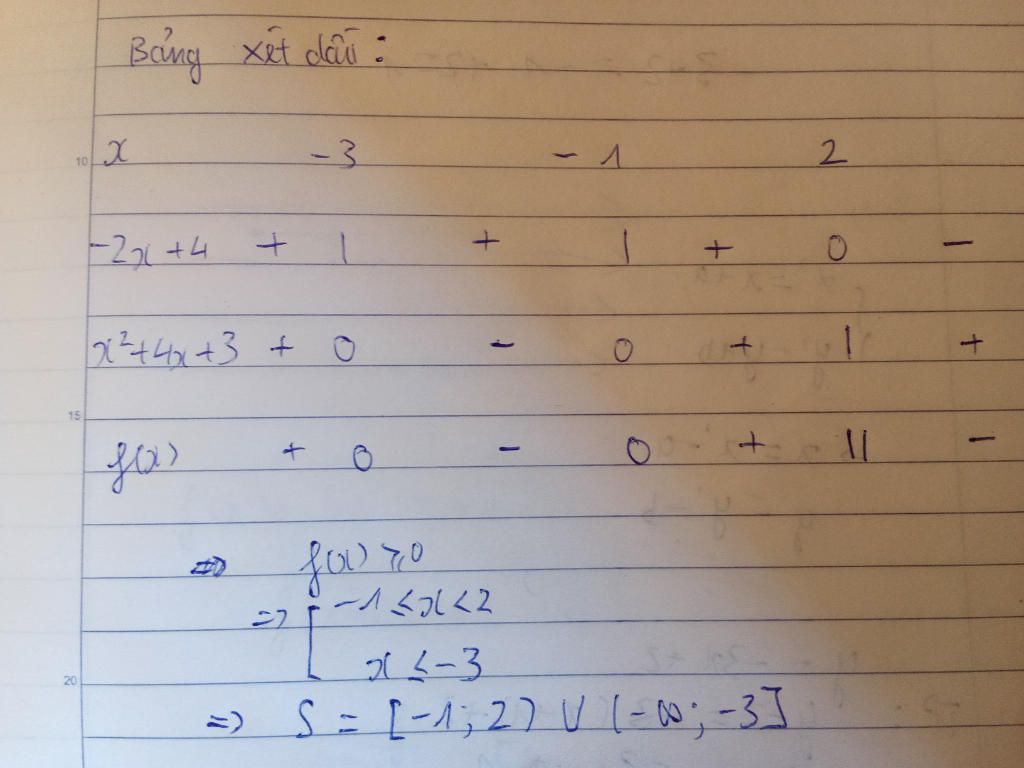 Bảng xét dấu:
10
x -3 -1 2
-2x+4 + | + | + 0 -
x²+4x+3 + 0 - 0 + | +
15
f(x) + 0 - 0 + || -
=> f(x) ≥ 0
=> [ -1 ≤ x < 2
x ≤ -3
20
=> S = [-1; 2) ∪ (-∞; -3]